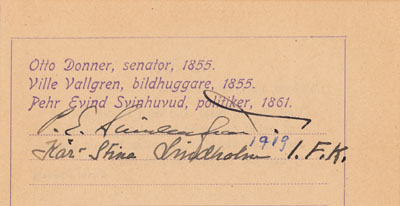 Otto Donner, senator, 1855.
Ville Vallgren, bildhuggare, 1855.
Pehr Evind Svinhuvud, politiker, 1861.
P. E. Svinhufvud
1919
Kär-Stina Lindholm I.F.K.